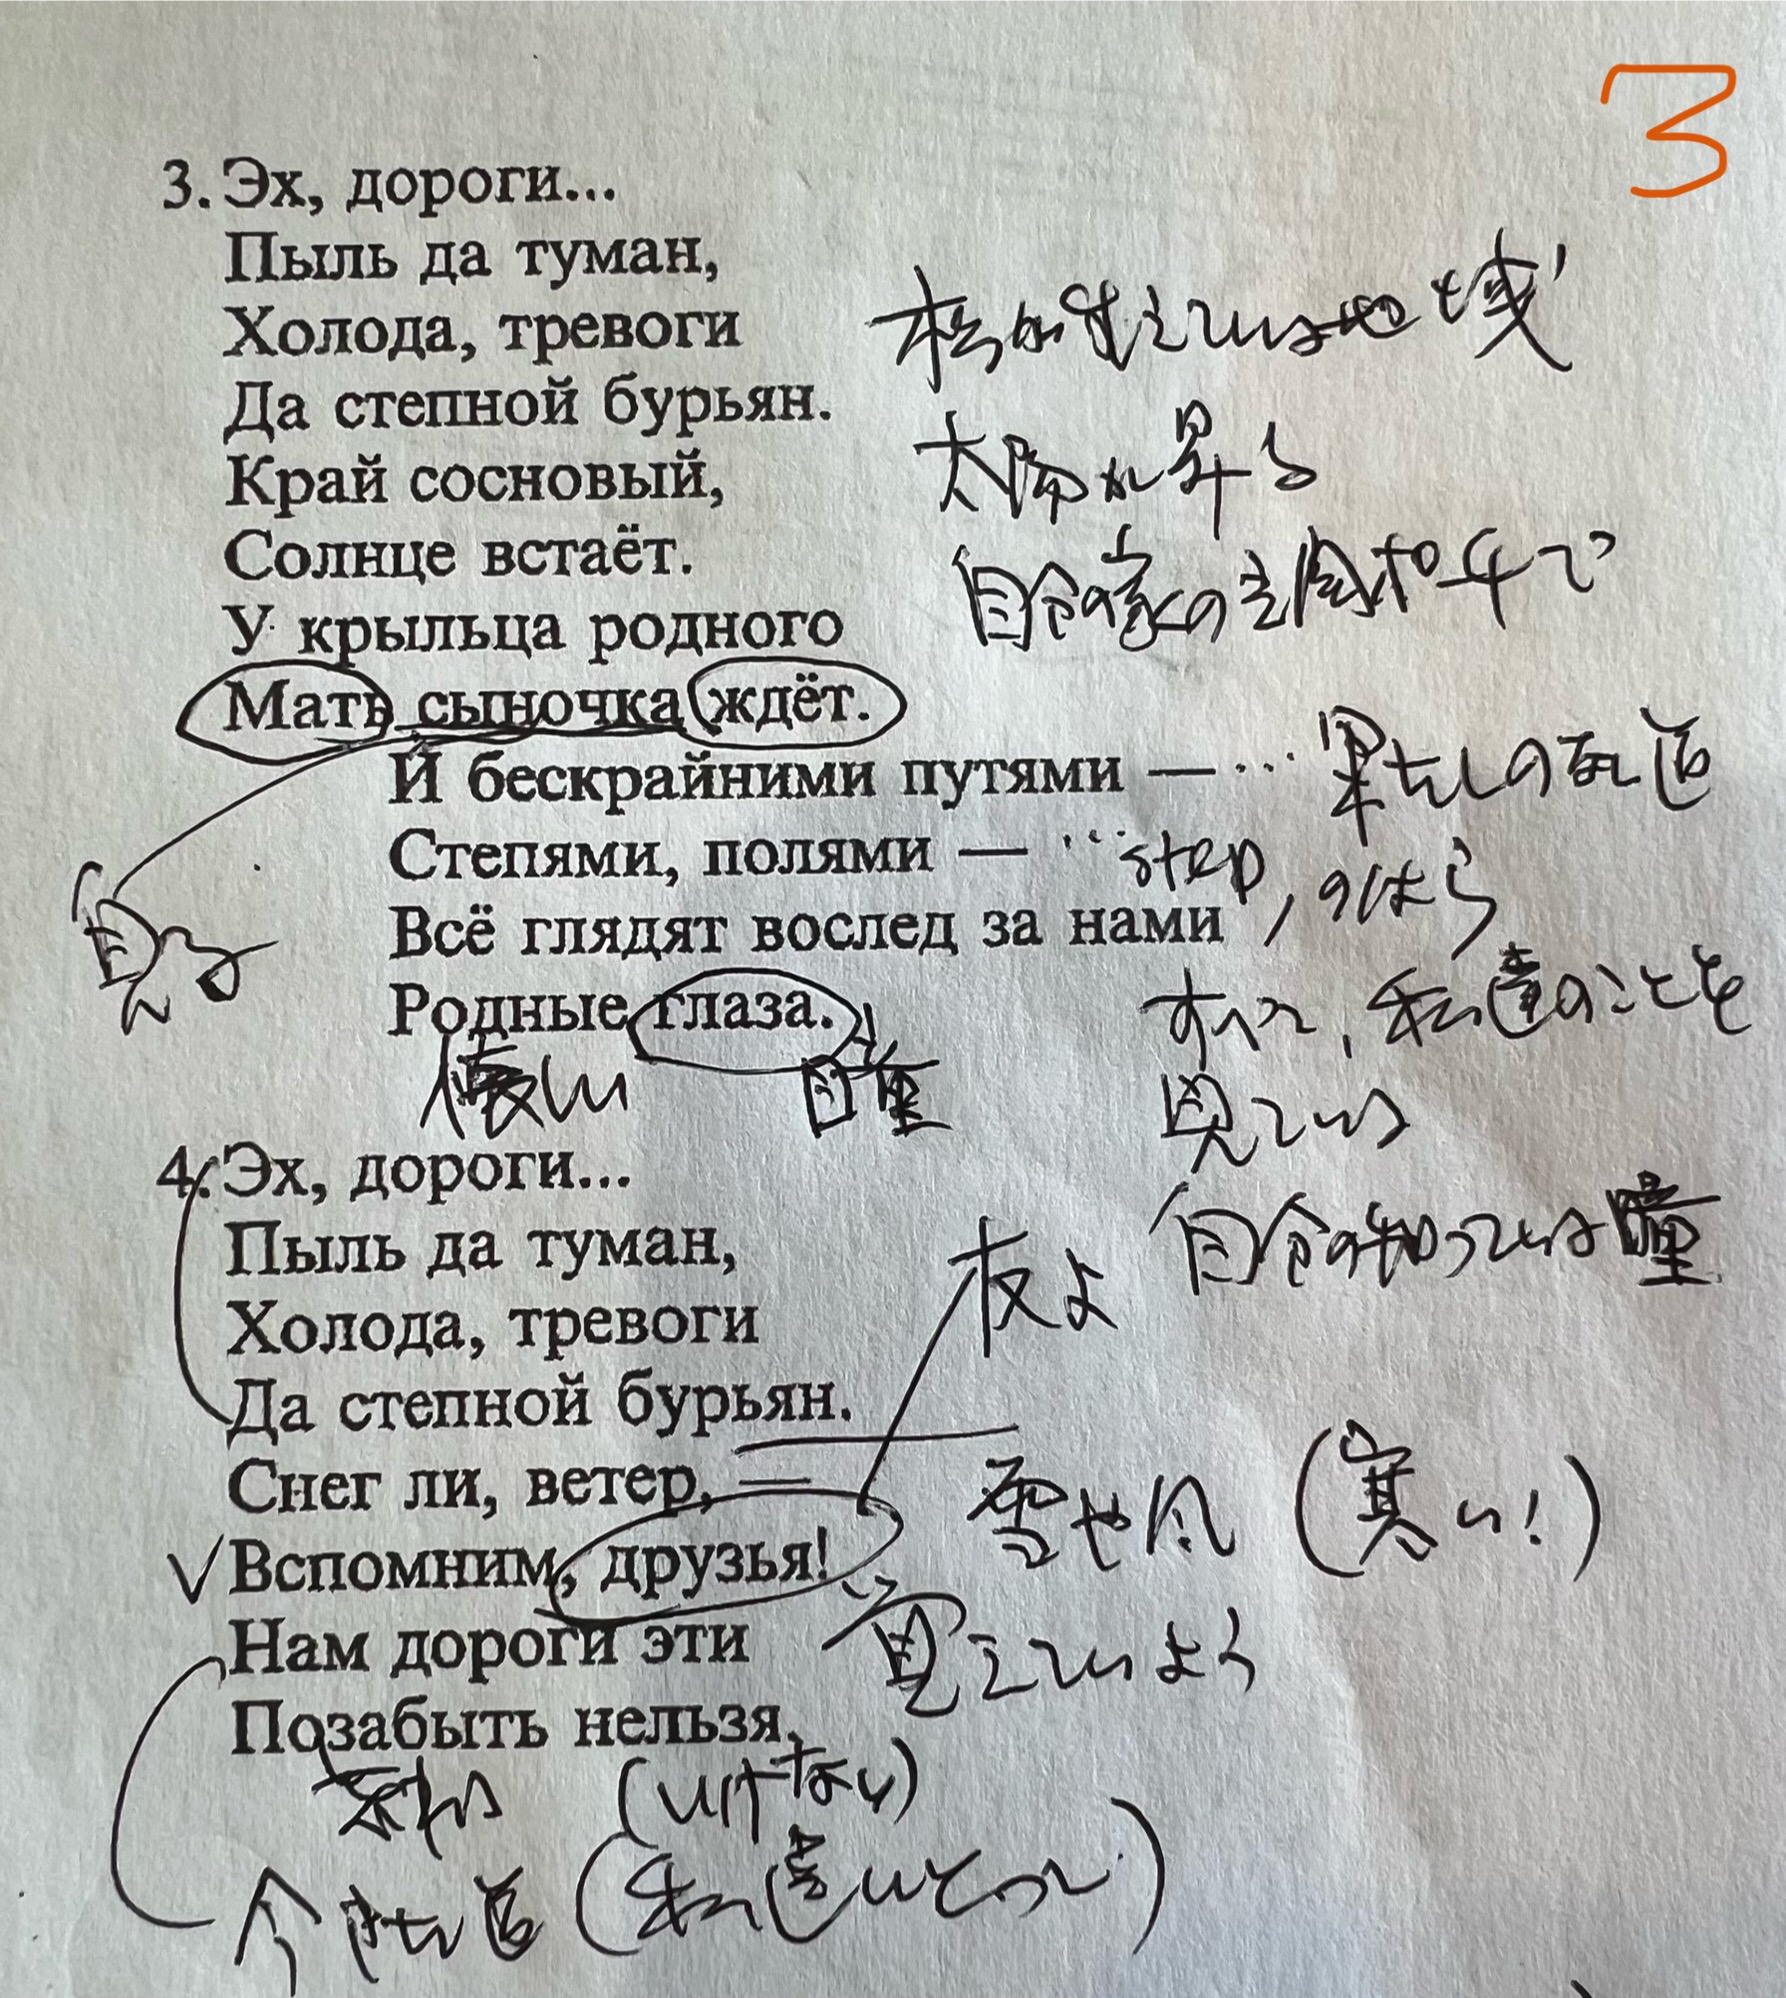 3
3. Эх, дороги...
Пыль да туман,
Холода, тревоги
Да степной бурьян.
Край сосновый,
Солнце встаёт.
У крыльца родного
Мать сыночка ждёт.
И бескрайними путями —
Степями, полями —
Всё глядят вослед за нами
Родные глаза.
太陽が昇る
果なしの
step, のはら
すべて, 私達のことを
見ている
懐しい
瞳
4. Эх, дороги...
Пыль да туман,
Холода, тревоги
Да степной бурьян.
Снег ли, ветер, —
Вспомним, друзья!
Нам дороги эти
Позабыть нельзя.
友よ
雪や風 (寒い!)
覚えていよう
(いけない)
(私達にとって)